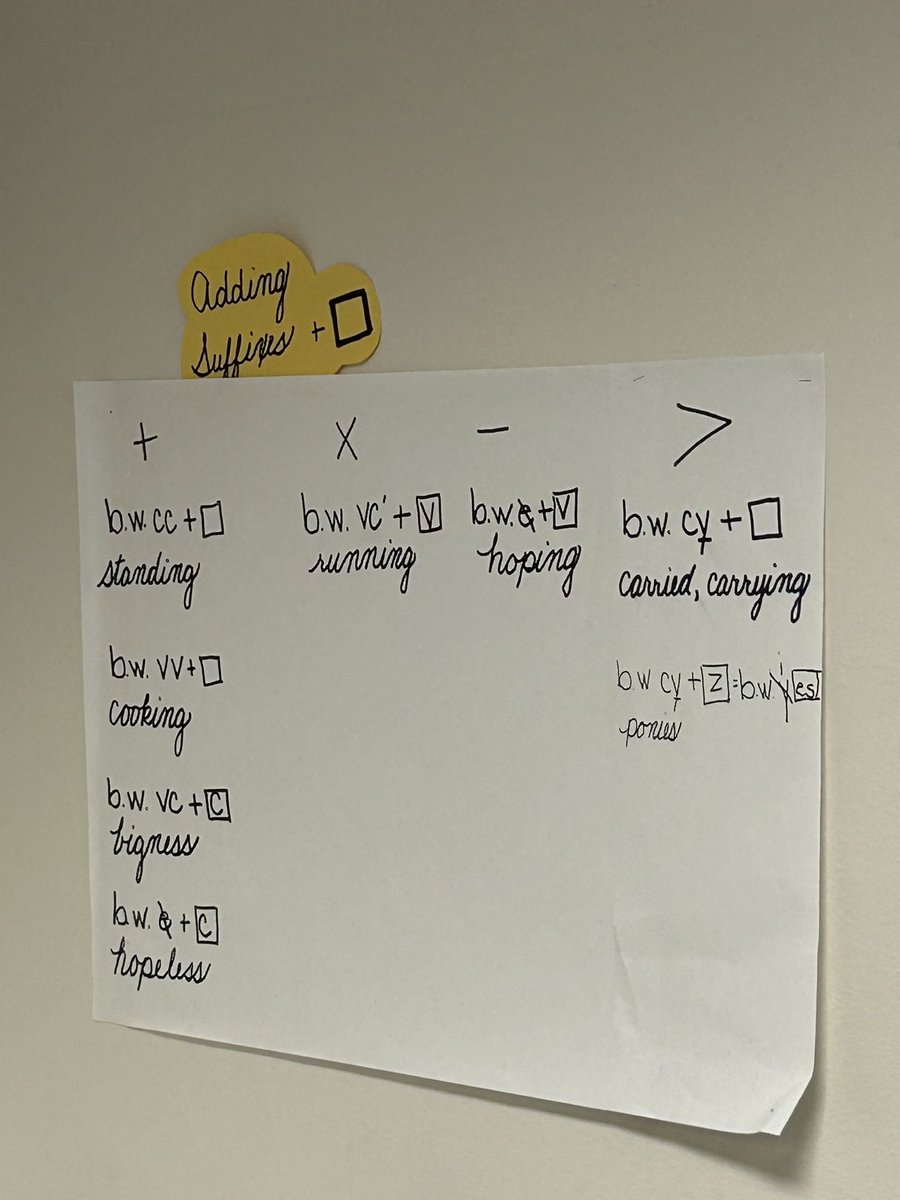 Adding
Suffixes + □
+ x - >
b.w. cc + □
standing
b.w. vv + □
cooking
b.w. vc + C
bigness
b.w. e + C
hopeless
b.w. vc' + V
running
b.w. e + V
hoping
b.w. cy + □
carried, carrying
b.w cy + Z = b.w. yi es
ponies